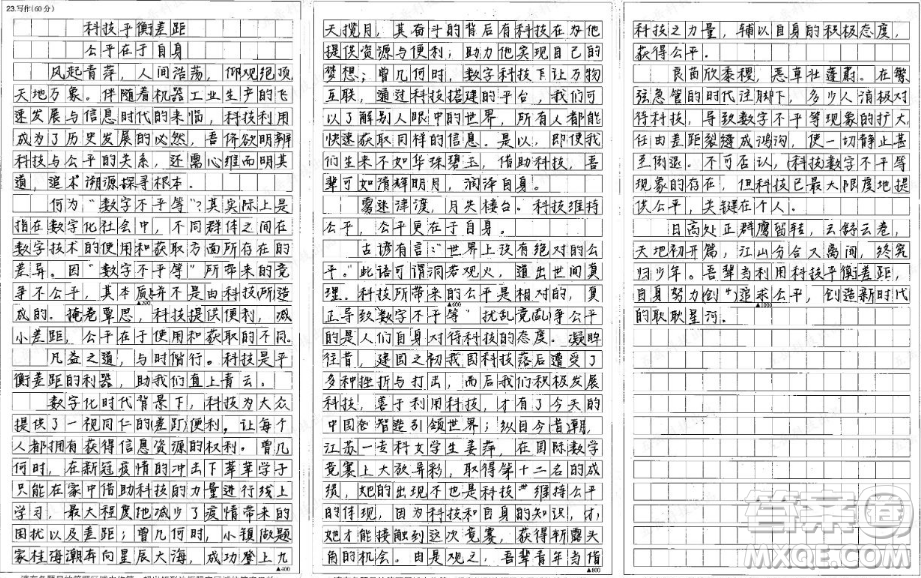 23.写作(60分)
科技平衡差距
公平在于自身
风起青萍，人间浩荡，仰观绝顶
天地万象。伴随着机器工业生产的飞
速发展与信息时代的来临，科技利用
成为了历史发展的必然，吾侪欲明辨
科技与公平的关系，还需心维而明其
道，追术溯源探寻根本。
何为“数字不平等”？其实际上是
指在数字化社会中，不同群体之间在
数字技术的使用和获取方面所存在的
差异。因“数字不平等”所带来的竞
争不公平，其本质并不是由科技所造
成的。掩卷覃思，科技提供便利，减
小差距，公平在于使用和获取的不同。
凡益之道，与时偕行。科技是平
衡差距的利器，助我们直上青云。
数字化时代背景下，科技为大众
提供了一视同仁的差距便利。让每个
人都拥有获得信息资源的权利。曾几
何时，在新冠疫情的冲击下莘莘学子
只能在家中借助科技的力量进行线上
学习，最大程度地减少了疫情带来的
困扰以及差距；曾几何时，小镇做题
家桂海潮奔向星辰大海，成功登上九
▲400
天揽月，其奋斗的背后有科技在为他
提供资源与便利；助力他实现自己的
梦想；曾几何时，数字科技下让万物
互联，通过科技搭建的平台，我们可
以了解别人眼中的世界，所有人都能
快速获取同样的信息。是以，即使我
们生来不如华珠碧玉，借助科技，吾
辈可如隋辉明月，润泽自身。
雾迷津渡，月失楼台。科技维持
公平，公平更在于自身。
古谚有言：“世界上没有绝对的公
平。”此语可谓洞若观火，道出世间真
理。科技所带来的公平是相对的，真
正导致“数字不平等”扰乱竞争公平
的是人们自身对待科技的态度。凝眸
往昔，建国之初我国科技落后遭受了
多种挫折与打击，而后我们积极发展
科技，善于利用科技，才有了今天的
中国创智造引领世界；纵目今昔潮，
江苏一专科文学生姜萍，在国际数学
竞赛上大放异彩，取得第十二名的成
绩，她的出现不也是科技“维持公平
的体现，因为科技和自身的知识，才，
她才能接触到这次竞赛，获得崭露头
角的机会。由是观之，吾辈青年当借
▲800
科技之力量，辅以自身的积极态度，
获得公平。
良苗欣黍稷，恶草壮蓬蒿。在繁
弦急管的时代注脚下，多少人消极对
待科技，导致数字不平等现象的扩大，
任由差距裂缝成鸿沟，使一切静止甚
至倒退。不可否认，科技数字不平等
现象的存在，但科技已最大限度地提
供公平，关键在个人。
日高处正群鹰翱翔，云舒云卷，
天地初开篇，江山分合又离间，终究
归少年。吾辈当利用科技平衡差距，
自身努力创追求公平，创造新时代
的耿耿星河。